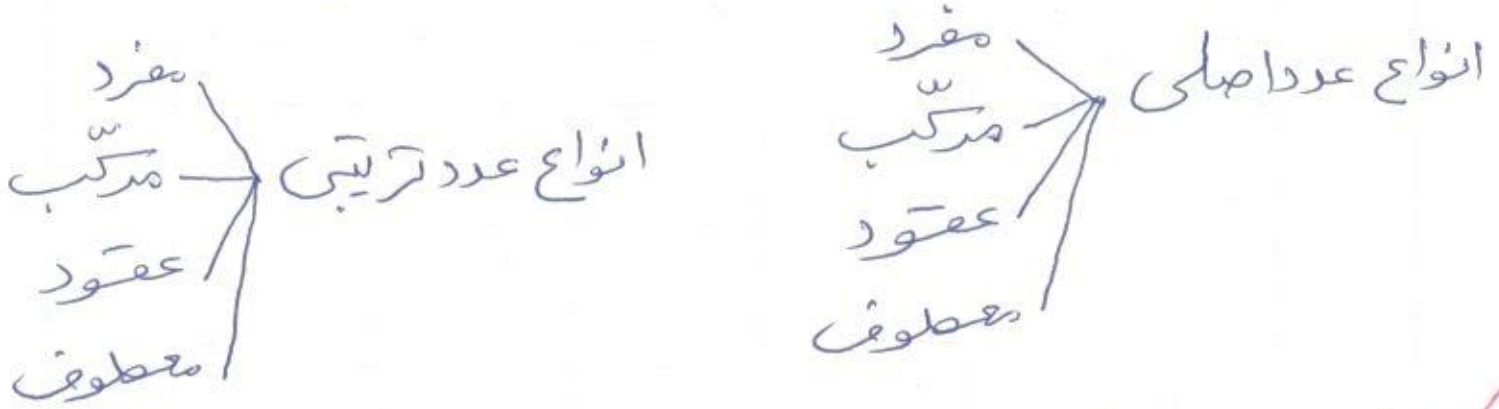 انواع عدد اصلی
مفرد
مرکّب
عقود
معطوف
انواع عدد ترتیبی
مفرد
مرکّب
عقود
معطوف